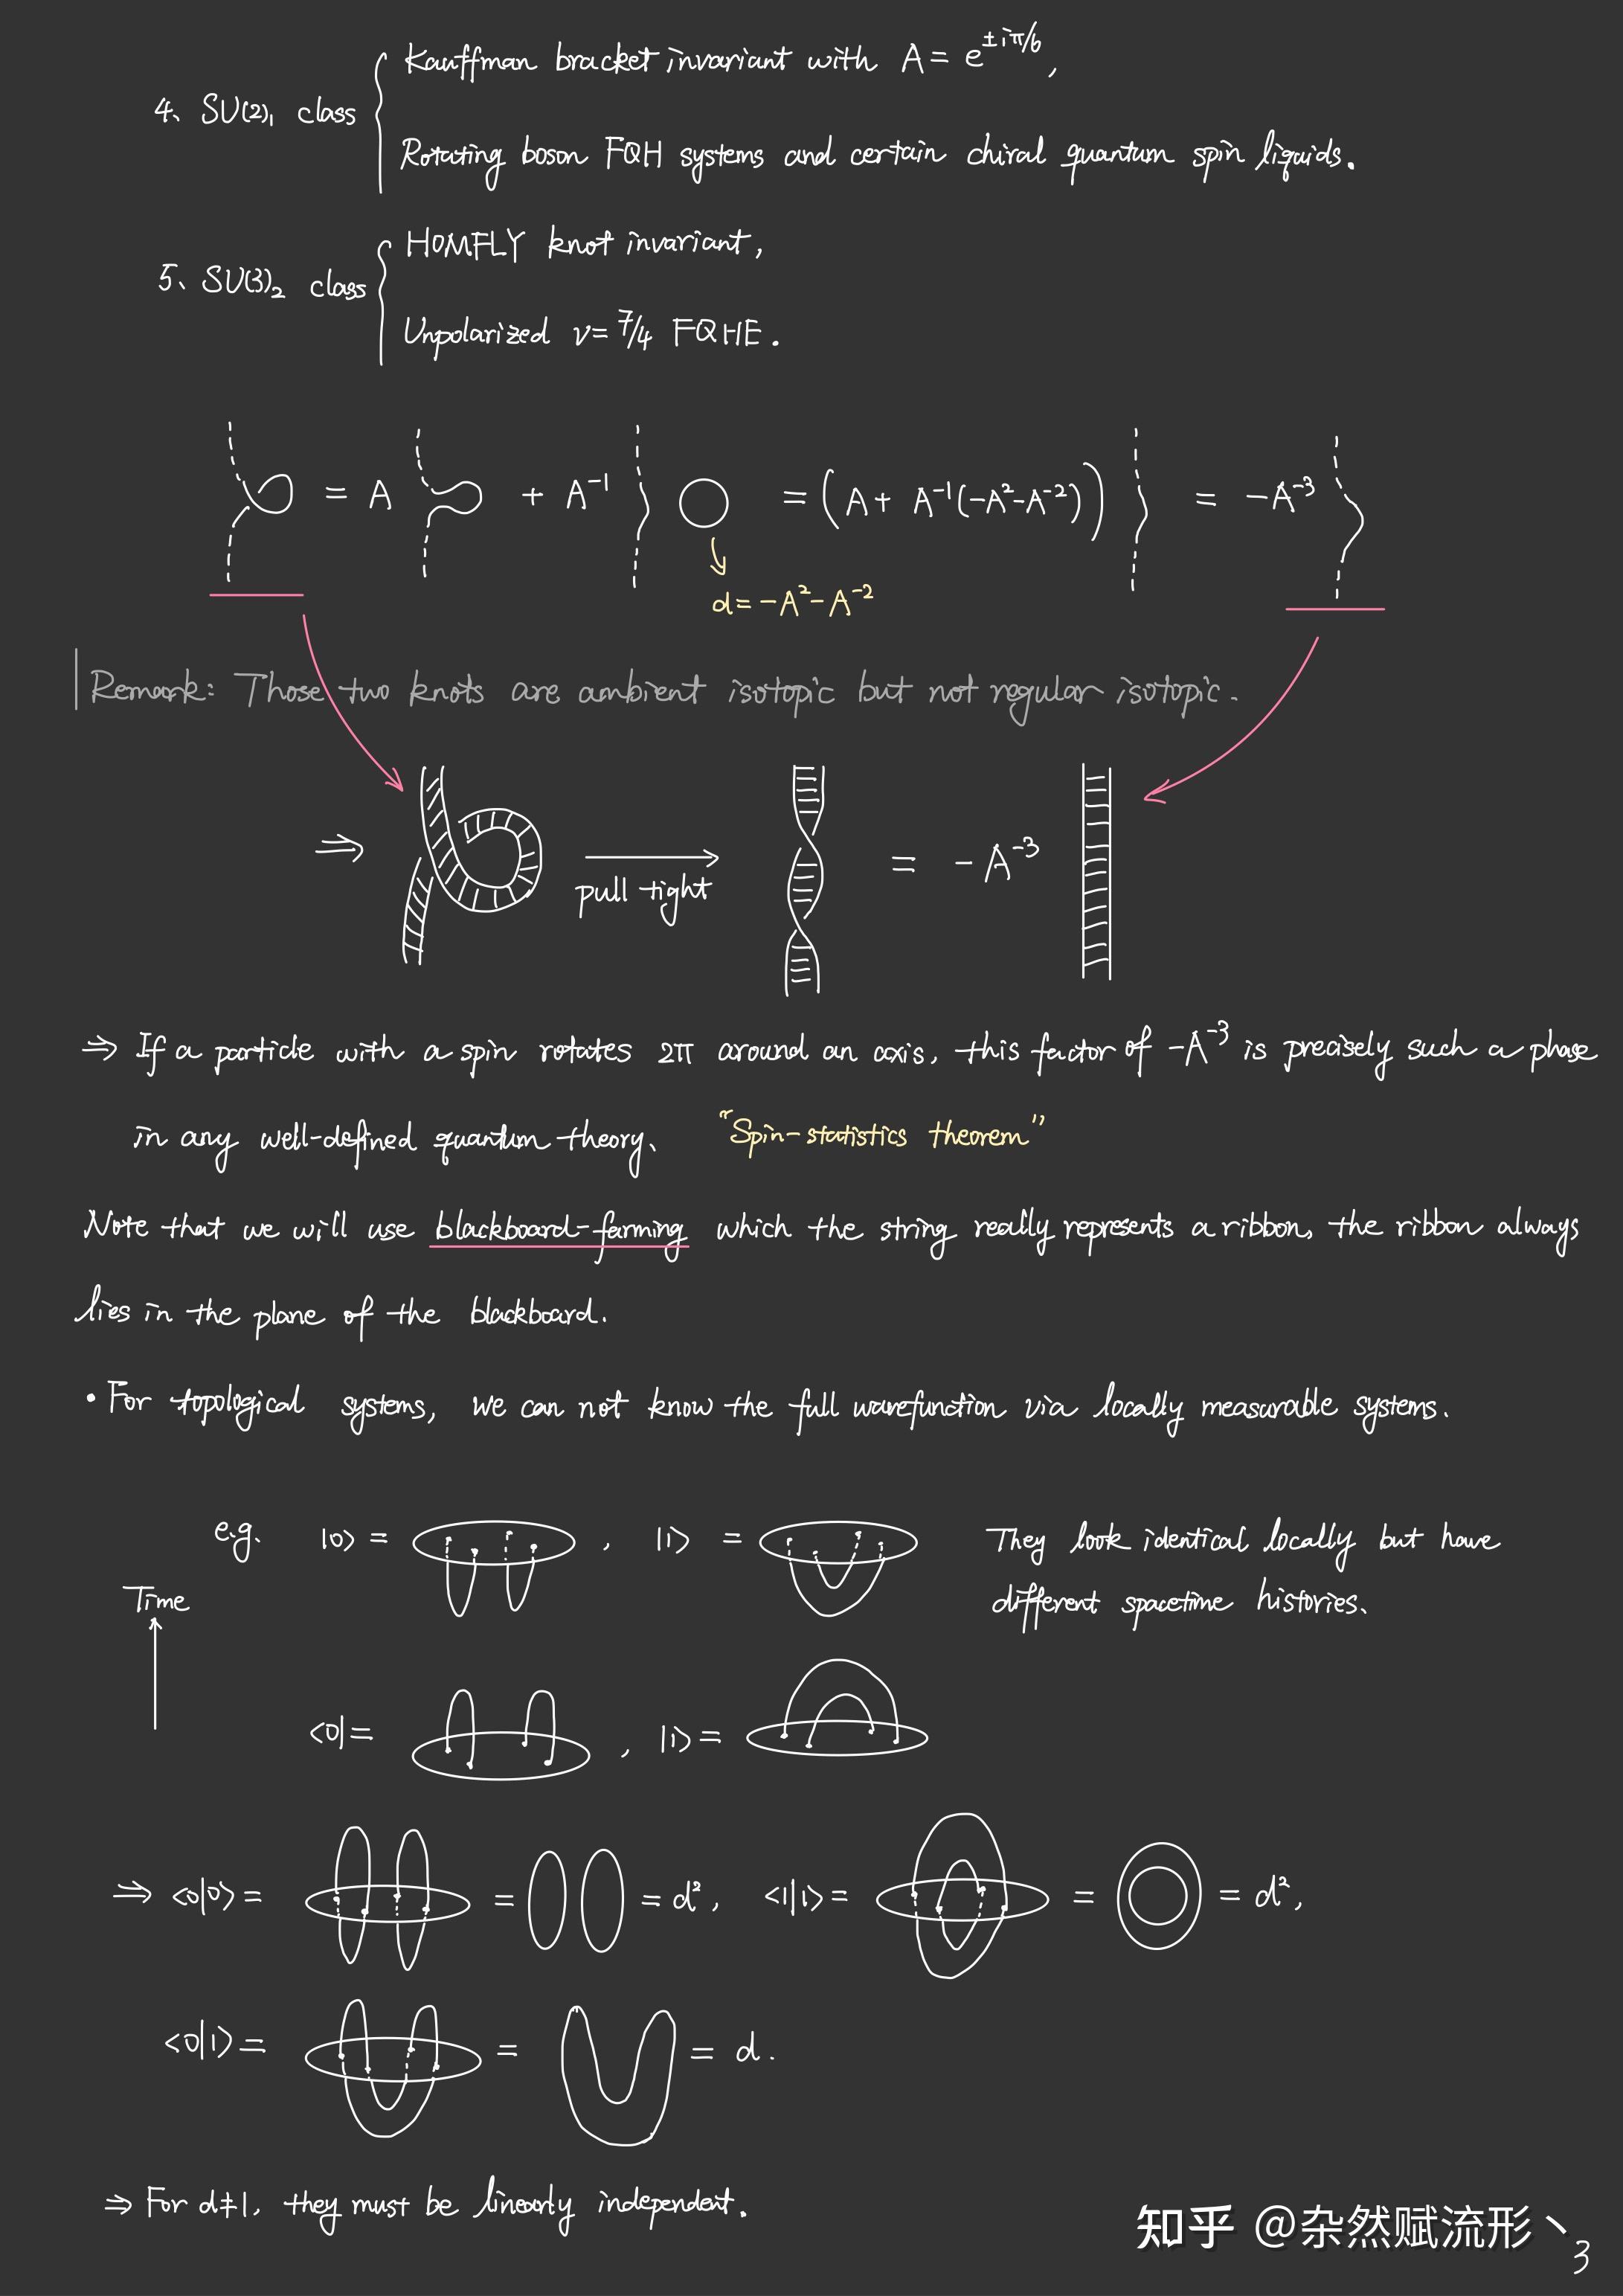 4、SU(2)₁ class
Kauffman bracket invariant with A = e^{±iπ/6},
Rotating boson FQH systems and certain chiral quantum spin liquids.
5、SU(3)₂ class
HOMFLY knot invariant,
Unpolarized ν = 7/4 FQHE.
= A + A⁻¹ = (A + A⁻¹(-A²-A⁻²)) = -A⁻³
d = -A²-A⁻²
Remark: Those two knots are ambient isotopic but not regular isotopic.
⇒ pull tight = -A⁻³
⇒ If a particle with a spin rotates 2π around an axis, this factor of -A⁻³ is precisely such a phase
in any well-defined quantum theory. "Spin-statistics theorem"
Note that we will use blackboard-farming which the string really represents a ribbon, the ribbon always
lies in the plane of the blackboard.
• For topological systems, we can not know the full wavefunction via locally measurable systems.
e.g. |0> = , |1> = They look identical locally but have
different spacetime histories.
Time
<0| = , |1> =
⇒ <0|0> = = = d², <1|1> = = = d²,
<0|1> = = = d.
⇒ For d≠1, they must be linearly independent.
知乎 @杂然赋流形丶
3